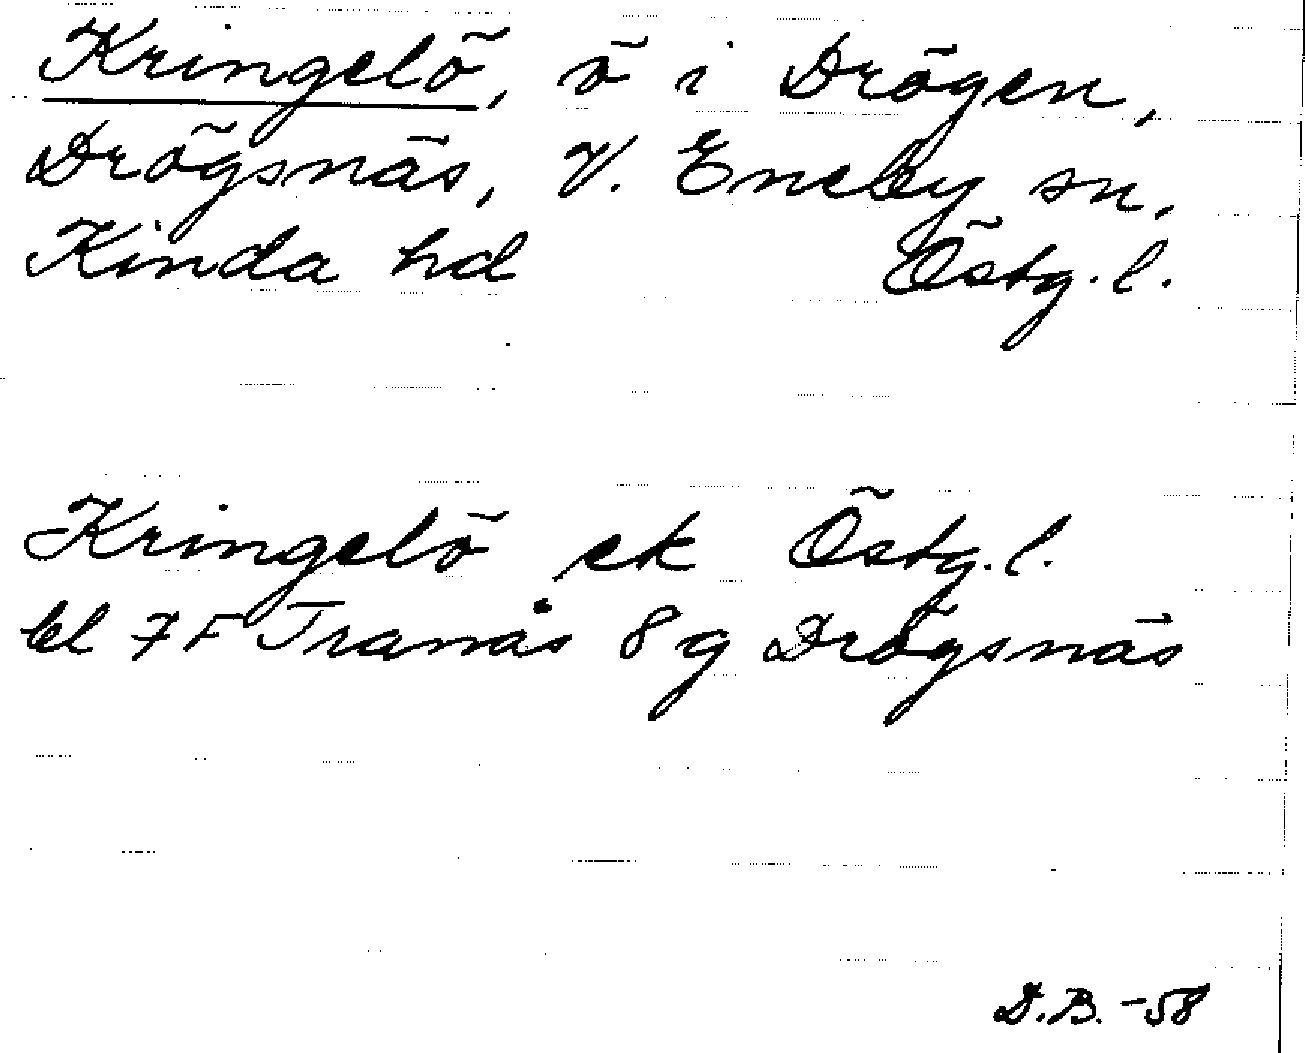 Kringelö, ö i Drögen,
Drögsnäs, V. Eneby sn,
Kinda hd Östg. l.
Kringelö ek Östg. l.
bl 7 F Tranås 8 g Drögsnäs
D.B. -58